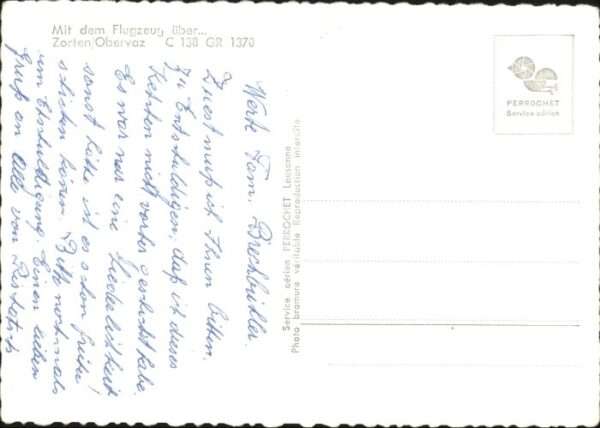 Mit dem Flugzeug über...
Zorten/Obervaz C 138 GR 1370
PERROCHET
Service aérien
Service aérien PERROCHET Lausanne
Photo bromure véritable Reproduction interdite
Werte Fam. Brechbühler.
Zuest muss ich Ihnen bitten.
Zu Entschuldigen, dass ich dieses
nicht vorher geschickt habe.
Es war nur eine Liederlichkeit
sonst hätte ich es schon früher
schicken können. Bitte nochmals
um Entschuldigung. Einen lieben
Gruß an Alle von